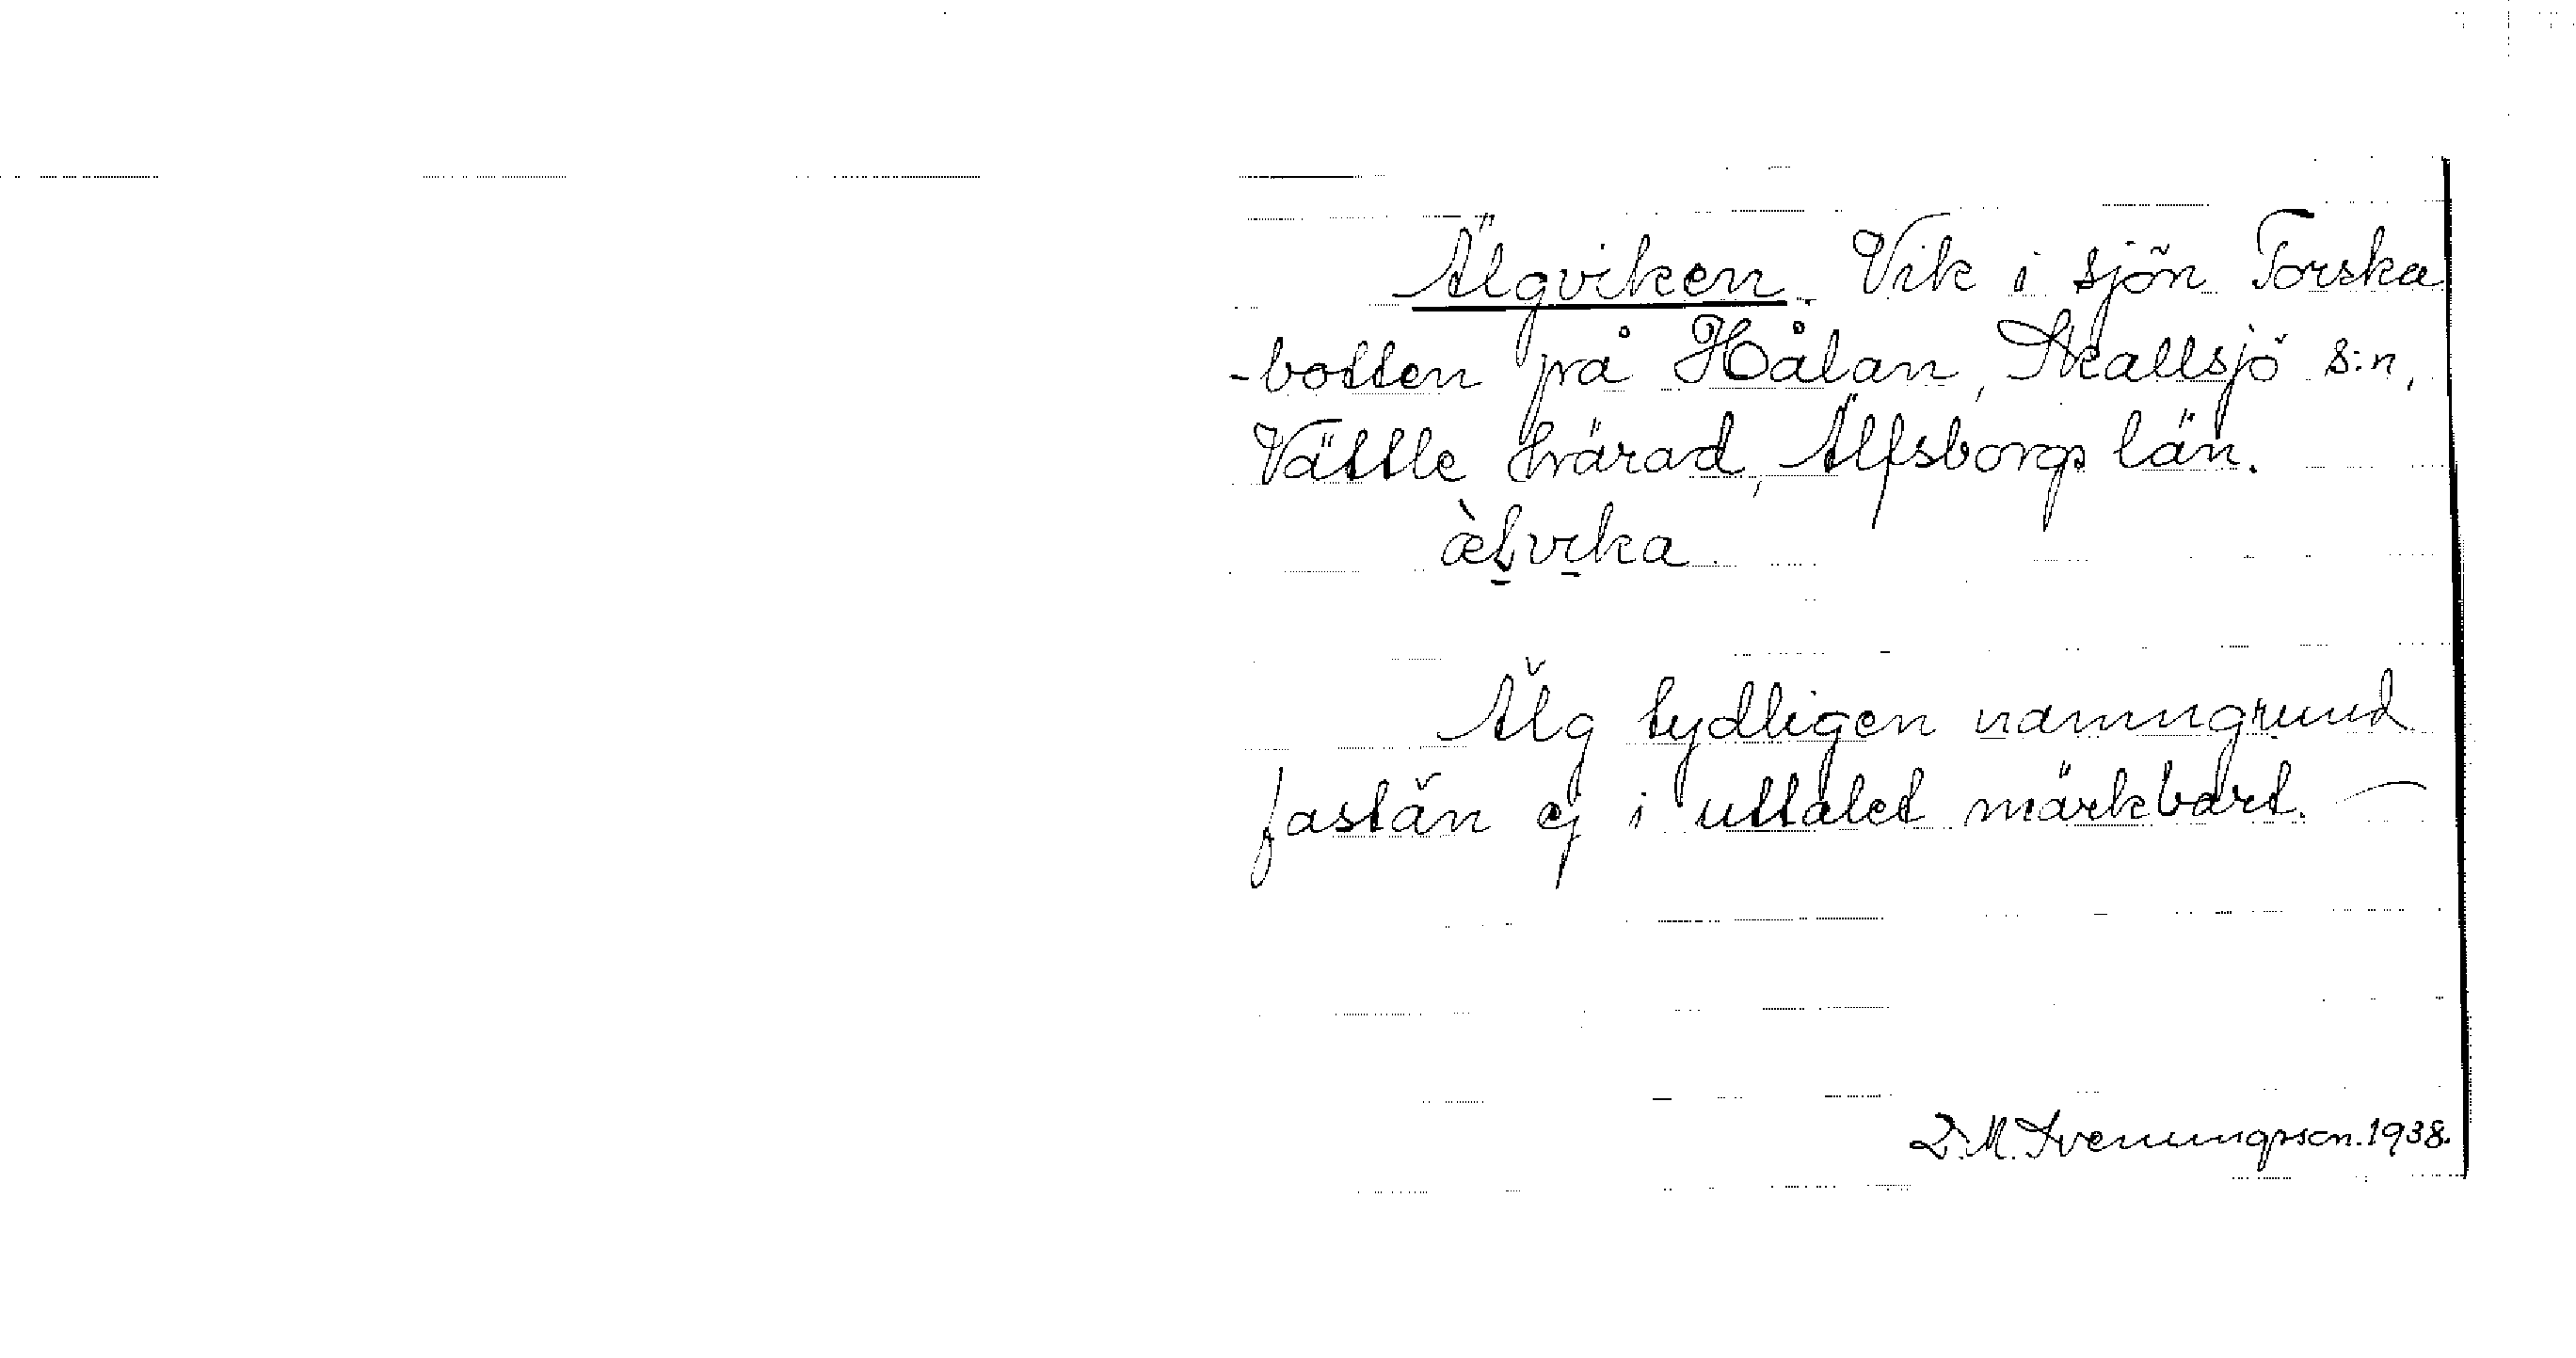 Älgviken. Vik i sjön Torska
-botten på Hålan, Skallsjö s:n,
Vättle härad, Älfsborgs län.
æ̀lvika
Älg tydligen namngrund
fastän ej i uttalet märkbart. —
D. M. Svenungsson. 1938.